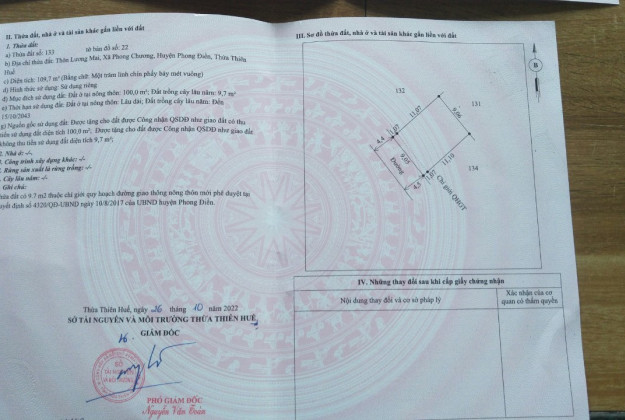 II. Thửa đất, nhà ở và tài sản khác gắn liền với đất
1. Thửa đất:
a) Thửa đất số: 133 tờ bản đồ số: 22
b) Địa chỉ thửa đất: Thôn Lương Mai, Xã Phong Chương, Huyện Phong Điền, Thừa Thiên
Huế
c) Diện tích: 109,7 m² (Bằng chữ: Một trăm linh chín phẩy bảy mét vuông)
d) Hình thức sử dụng: Sử dụng riêng
đ) Mục đích sử dụng đất: Đất ở tại nông thôn: 100,0 m²; Đất trồng cây lâu năm: 9,7 m²
e) Thời hạn sử dụng đất: Đất ở tại nông thôn: Lâu dài; Đất trồng cây lâu năm: Đến
15/10/2043
g) Nguồn gốc sử dụng đất: Được tặng cho đất được Công nhận QSDĐ như giao đất có thu
tiền sử dụng đất diện tích 100,0 m²; Được tặng cho đất được Công nhận QSDĐ như giao đất
không thu tiền sử dụng đất diện tích 9,7 m²;
2. Nhà ở: -/-
3. Công trình xây dựng khác: -/-
4. Rừng sản xuất là rừng trồng: -/-
5. Cây lâu năm: -/-
Ghi chú:
Thửa đất có 9.7 m2 thuộc chỉ giới quy hoạch đường giao thông nông thôn mới phê duyệt tại
quyết định số 4320/QĐ-UBND ngày 10/8/2017 của UBND huyện Phong Điền.
Thừa Thiên Huế, ngày 26 tháng 10 năm 2022
SỞ TÀI NGUYÊN VÀ MÔI TRƯỜNG THỪA THIÊN HUẾ
GIÁM ĐỐC
SỞ
TÀI NGUYÊN
VÀ MÔI TRƯỜNG
PHÓ GIÁM ĐỐC
Nguyễn Văn Toàn
III. Sơ đồ thửa đất, nhà ở và tài sản khác gắn liền với đất
B
132
11.07
9.06
131
1.07
4,4
9.05
Đường
11.10
134
1.07
4,5
Chỉ giới QHGT
IV. Những thay đổi sau khi cấp giấy chứng nhận
Nội dung thay đổi và cơ sở pháp lý
Xác nhận của cơ
quan có thẩm quyền